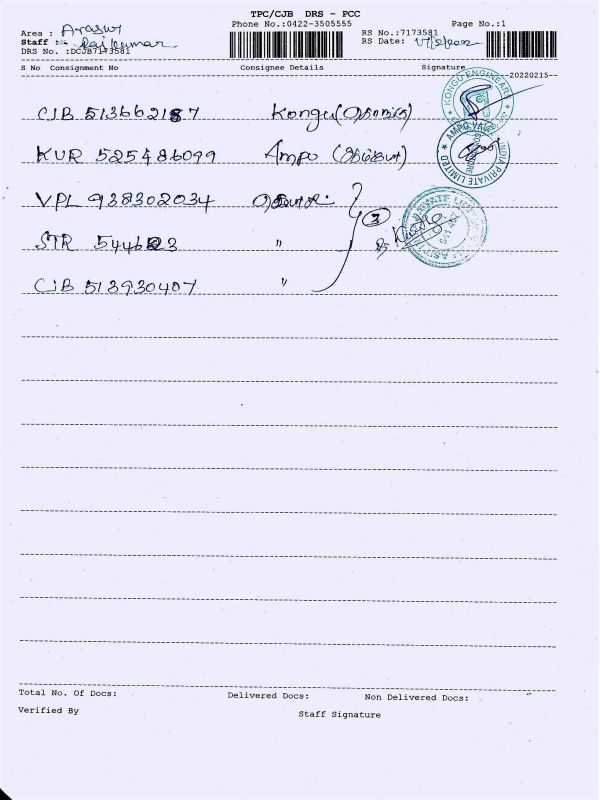 TPC/CJB DRS - PCC
Phone No.:0422-3505555
Page No.:1
Area : Arasur
Staff : Raj Kumar
DRS No. :DCJB7173581
RS No.:7173581
RS Date:
S No Consignment No Consignee Details Signature
20220215
CJB 513662187 Kongu
KUR 525486099 Ampo
VPL 938302034
STR "
CJB 513930407 "
3
KONGU ENGINEARS
AMPO VALVES INDIA PRIVATE LIMITED
Total No. Of Docs: Delivered Docs: Non Delivered Docs:
Verified By Staff Signature